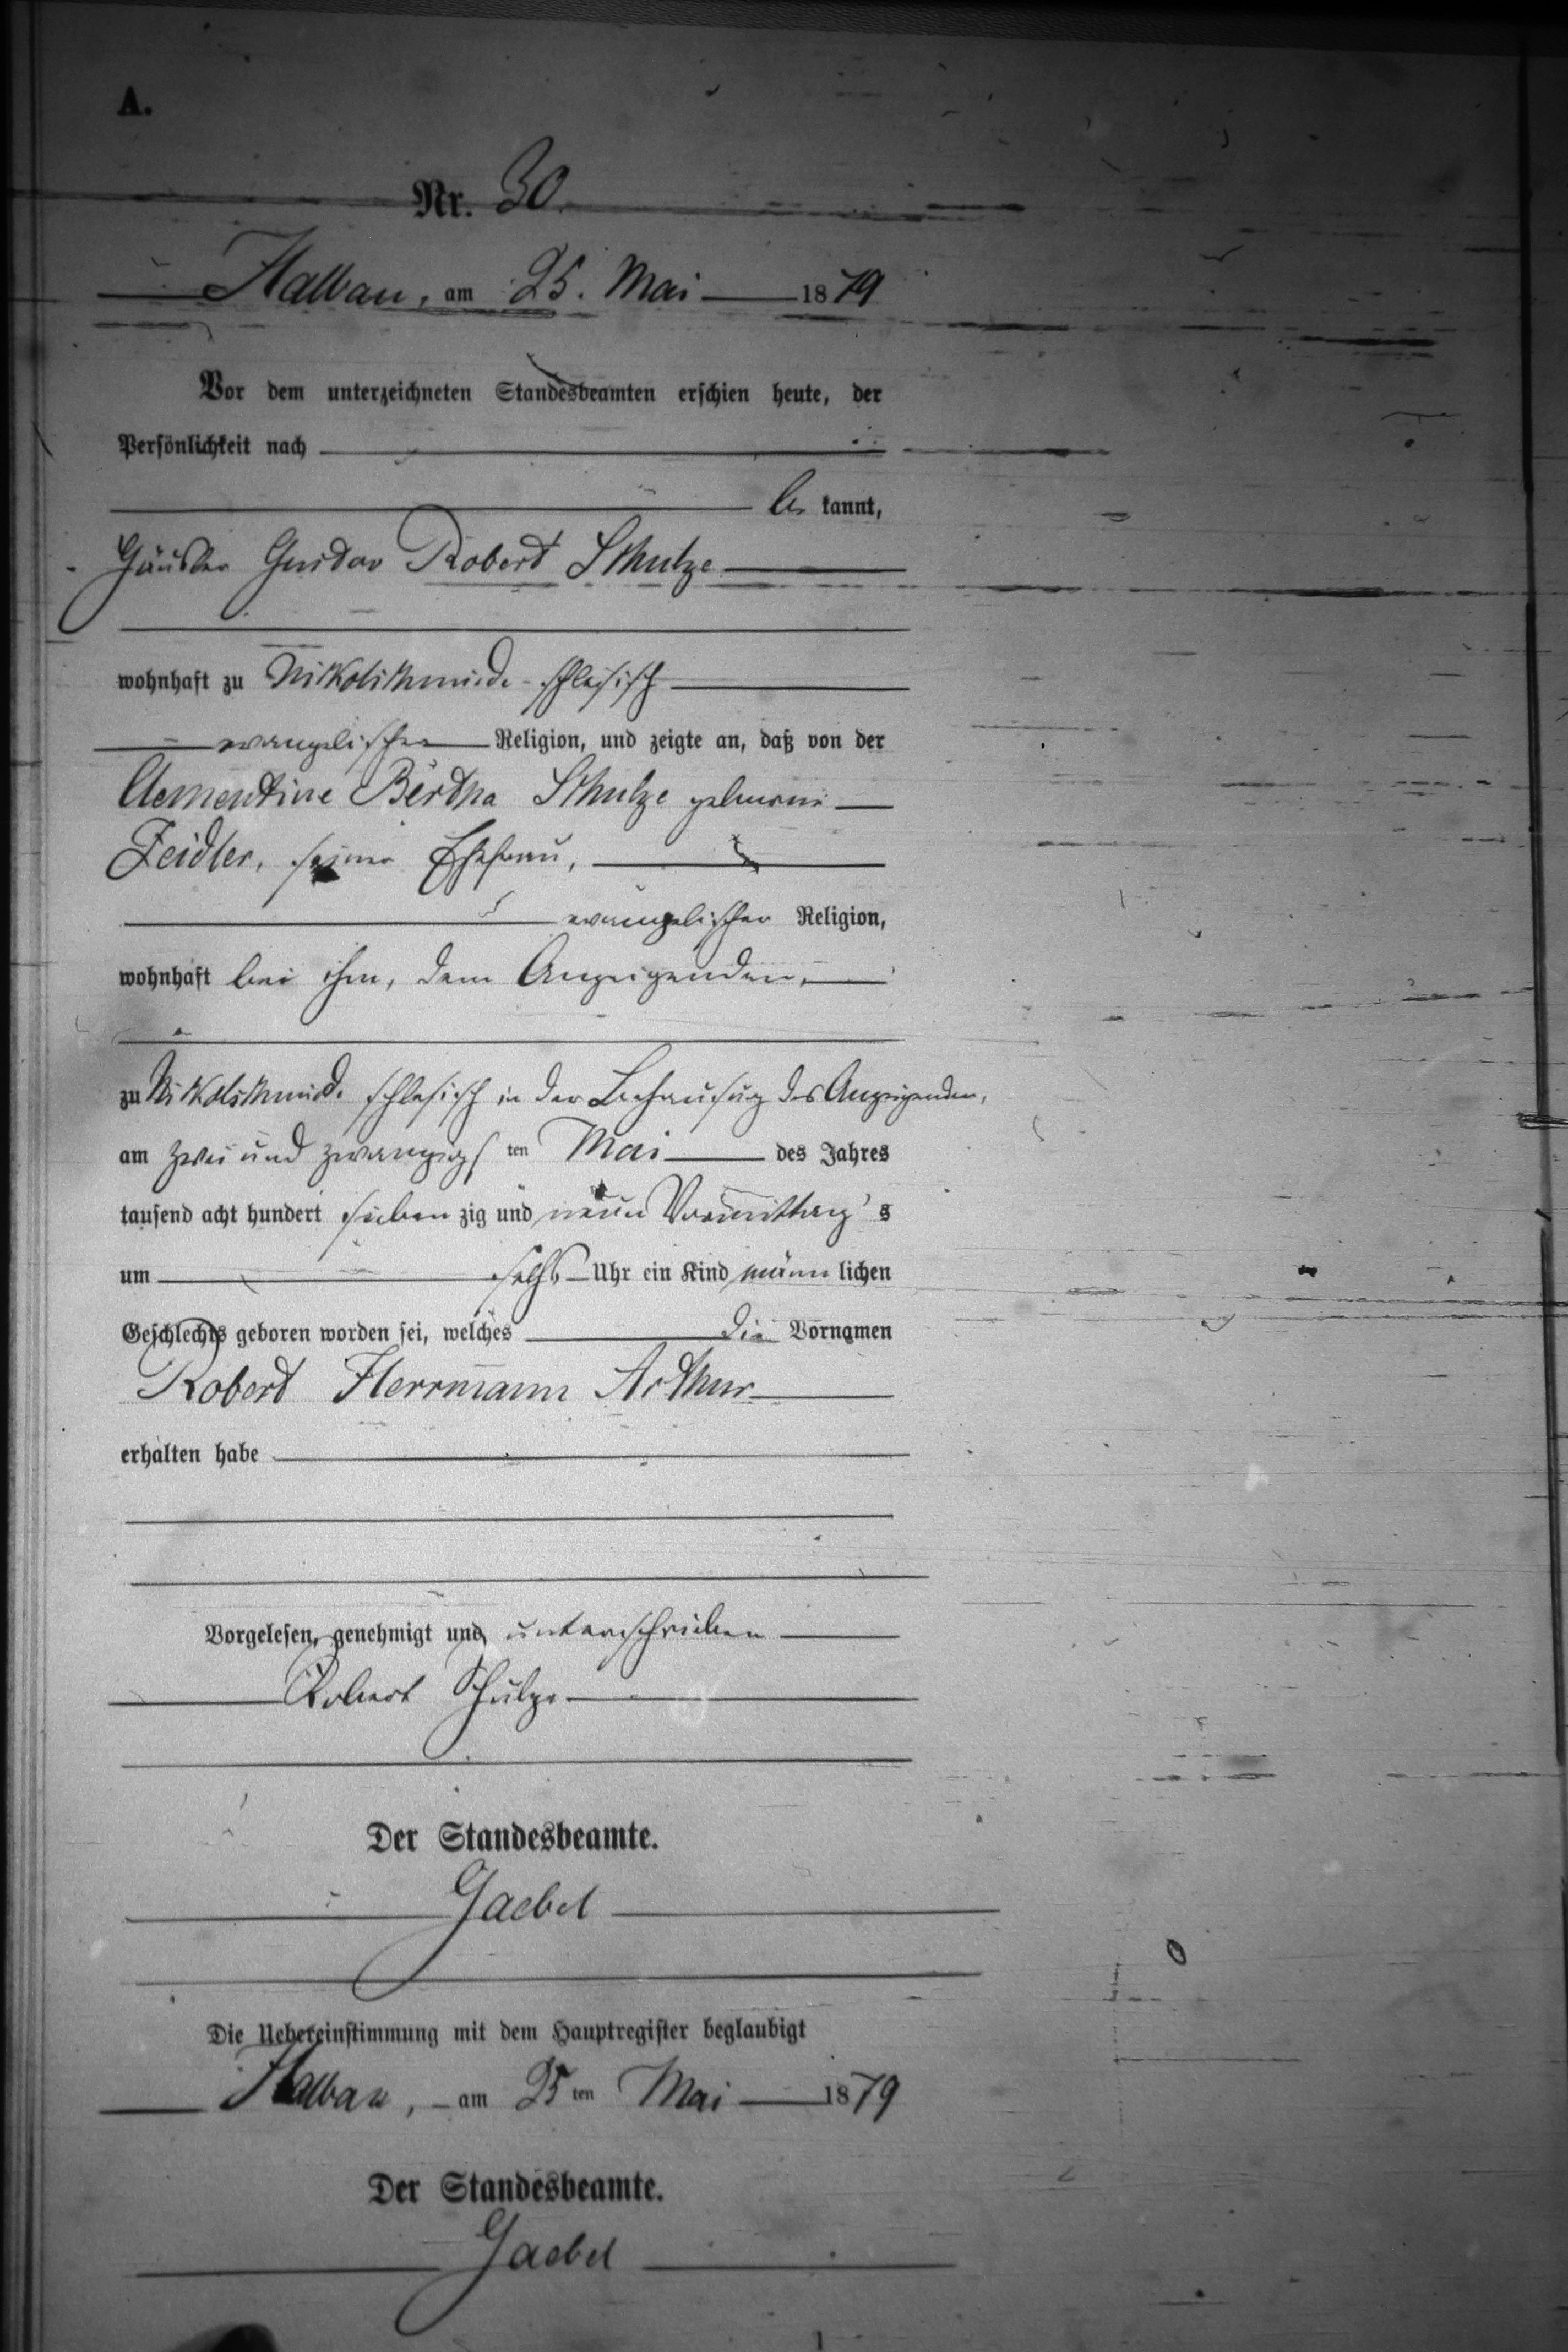 A.
Nr. 30.
Halbau, am 25. Mai 1879
Vor dem unterzeichneten Standesbeamten erschien heute, der
Persönlichkeit nach
be kannt,
Häusler Gustav Robert Schulze
wohnhaft zu Nikolschmiede-schlesisch
evangelischer Religion, und zeigte an, daß von der
Clementine Bertha Schulze geborene
Zeidler, seiner Ehefrau,
evangelischer Religion,
wohnhaft bei ihm, dem Anzeigenden,
zu Nikolschmiede schlesisch in der Behausung des Anzeigenden,
am zwei und zwanzigs ten Mai des Jahres
tausend acht hundert sieben zig und neun Vormittag s
um sechs Uhr ein Kind männ lichen
Geschlechts geboren worden sei, welches die Vornamen
Robert Herrmann Arthur
erhalten habe
Vorgelesen, genehmigt und unterschrieben
Robert Schulze
Der Standesbeamte.
Gaebel
Die Uebereinstimmung mit dem Hauptregister beglaubigt
Halbau, am 25 ten Mai 1879
Der Standesbeamte.
Gaebel